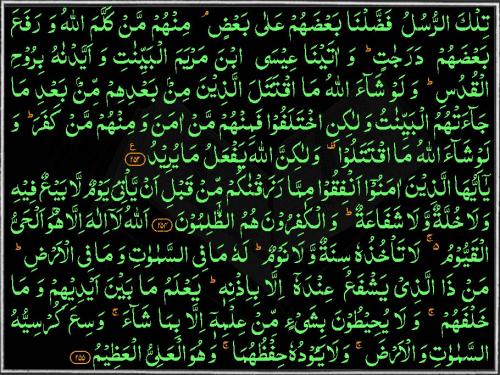 تِلْكَ الرُّسُلُ فَضَّلْنَا بَعْضَهُمْ عَلٰى بَعْضٍ ۘ مِنْهُمْ مَّنْ كَلَّمَ اللّٰهُ وَ رَفَعَ
بَعْضَهُمْ دَرَجٰتٍ ؕ وَ اٰتَيْنَا عِيْسَى ابْنَ مَرْيَمَ الْبَيِّنٰتِ وَ اَيَّدْنٰهُ بِرُوْحِ
الْقُدُسِ ؕ وَ لَوْ شَآءَ اللّٰهُ مَا اقْتَتَلَ الَّذِيْنَ مِنْۢ بَعْدِهِمْ مِّنْۢ بَعْدِ مَا
جَآءَتْهُمُ الْبَيِّنٰتُ وَ لٰكِنِ اخْتَلَفُوْا فَمِنْهُمْ مَّنْ اٰمَنَ وَ مِنْهُمْ مَّنْ كَفَرَ ؕ وَ
لَوْ شَآءَ اللّٰهُ مَا اقْتَتَلُوْا ۫ وَ لٰكِنَّ اللّٰهَ يَفْعَلُ مَا يُرِيْدُ ﴿۲۵۳﴾ ع
يٰۤاَيُّهَا الَّذِيْنَ اٰمَنُوْۤا اَنْفِقُوْا مِمَّا رَزَقْنٰكُمْ مِّنْ قَبْلِ اَنْ يَّاْتِيَ يَوْمٌ لَّا بَيْعٌ فِيْهِ
وَ لَا خُلَّةٌ وَّ لَا شَفَاعَةٌ ؕ وَ الْكٰفِرُوْنَ هُمُ الظّٰلِمُوْنَ ﴿۲۵۴﴾ اَللّٰهُ لَاۤ اِلٰهَ اِلَّا هُوَ ۚ اَلْحَيُّ
الْقَيُّوْمُ ۬ۚ لَا تَاْخُذُهٗ سِنَةٌ وَّ لَا نَوْمٌ ؕ لَهٗ مَا فِي السَّمٰوٰتِ وَ مَا فِي الْاَرْضِ ؕ
مَنْ ذَا الَّذِيْ يَشْفَعُ عِنْدَهٗۤ اِلَّا بِاِذْنِهٖ ؕ يَعْلَمُ مَا بَيْنَ اَيْدِيْهِمْ وَ مَا
خَلْفَهُمْ ۚ وَ لَا يُحِيْطُوْنَ بِشَيْءٍ مِّنْ عِلْمِهٖۤ اِلَّا بِمَا شَآءَ ۚ وَسِعَ كُرْسِيُّهُ
السَّمٰوٰتِ وَ الْاَرْضَ ۚ وَ لَا يَـُٔوْدُهٗ حِفْظُهُمَا ۚ وَ هُوَ الْعَلِيُّ الْعَظِيْمُ ﴿۲۵۵﴾